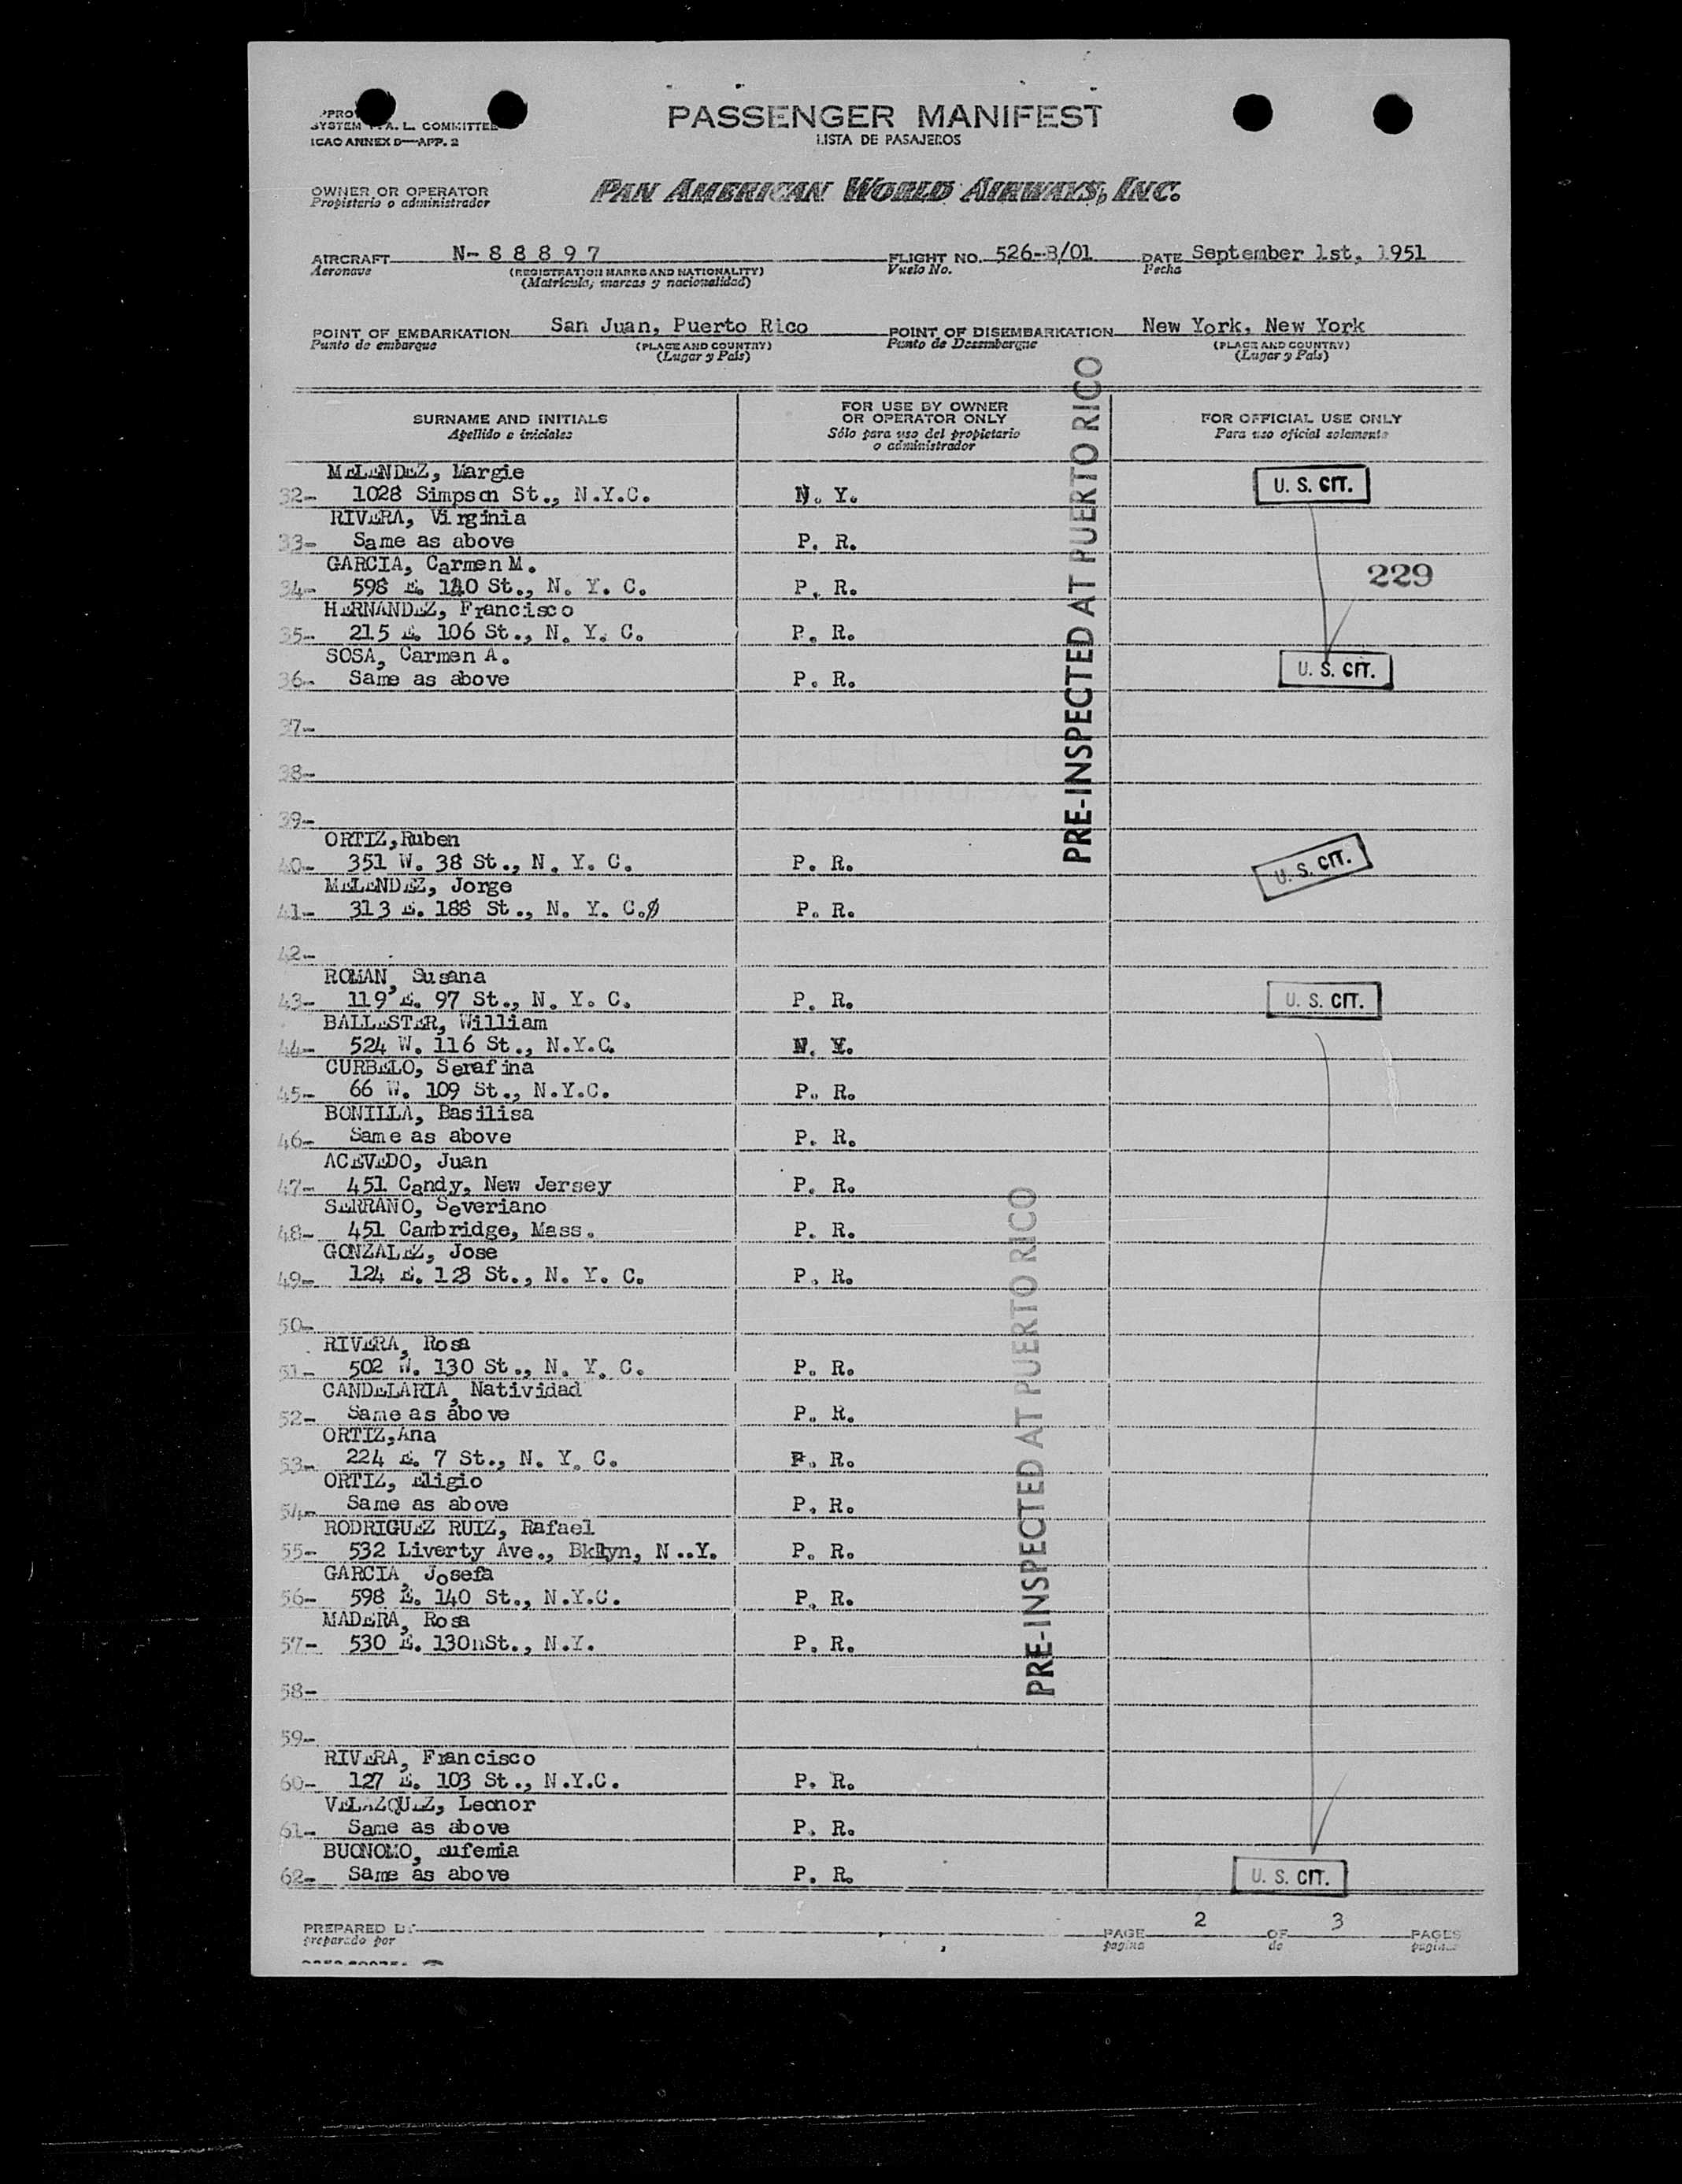 SYSTEM F.A.L. COMMITTEE
ICAO ANNEX D—APP. 2
PASSENGER MANIFEST
LISTA DE PASAJEROS
OWNER OR OPERATOR
Propietario o administrador
PAN AMERICAN WORLD AIRWAYS, INC.
AIRCRAFT N- 8 8 8 9 7 FLIGHT NO. 526-B/01 DATE September 1st, 1951
Aeronave (REGISTRATION MARKS AND NATIONALITY) Vuelo No. Fecha
(Matricula, marcas y nacionalidad)
POINT OF EMBARKATION San Juan, Puerto Rico POINT OF DISEMBARKATION New York, New York
Punto de embarque (PLACE AND COUNTRY) Punto de Desembarque (PLACE AND COUNTRY)
(Lugar y Pais) (Lugar y Pais)
SURNAME AND INITIALS FOR USE BY OWNER OR OPERATOR ONLY FOR OFFICIAL USE ONLY
Apellido e iniciales Sólo para uso del propietario o administrador Para uso oficial solamente
PRE-INSPECTED AT PUERTO RICO
MELENDEZ, Margie
32- 1028 Simpson St., N.Y.C. N. Y. U. S. CIT.
RIVERA, Virginia
33- Same as above P. R.
GARCIA, Carmen M. 229
34- 598 E. 140 St., N. Y. C. P. R.
HERNANDEZ, Francisco
35- 215 E. 106 St., N. Y. C. P. R.
SOSA, Carmen A.
36- Same as above P. R. U. S. CIT.
37-
38-
39-
ORTIZ,Ruben
40- 351 W. 38 St., N. Y. C. P. R. U. S. CIT.
MELENDEZ, Jorge
41- 313 E. 188 St., N. Y. C. P. R.
42-
ROMAN, Susana
43- 119 E. 97 St., N. Y. C. P. R. U. S. CIT.
BALLESTER, William
44- 524 W. 116 St., N.Y.C. N. Y.
CURBELO, Serafina
45- 66 W. 109 St., N.Y.C. P. R.
BONILLA, Basilisa
46- Same as above P. R.
ACEVEDO, Juan
47- 451 Candy, New Jersey P. R.
SERRANO, Severiano
48- 451 Cambridge, Mass. P. R.
GONZALEZ, Jose
49- 124 E. 128 St., N. Y. C. P. R.
50-
RIVERA, Rosa
51- 502 W. 130 St., N. Y. C. P. R.
CANDELARIA, Natividad
52- Same as above P. R.
ORTIZ,Ana
53- 224 E. 7 St., N. Y. C. P. R.
ORTIZ, Eligio
54- Same as above P. R.
RODRIGUEZ RUIZ, Rafael
55- 532 Liverty Ave., Bklyn, N..Y. P. R.
GARCIA, Josefa
56- 598 E. 140 St., N.Y.C. P. R.
MADERA, Rosa
57- 530 E. 130nSt., N.Y. P. R.
PRE-INSPECTED AT PUERTO RICO
58-
59-
RIVERA, Francisco
60- 127 E. 103 St., N.Y.C. P. R.
VELAZQUEZ, Leonor
61- Same as above P. R.
BUONOMO, Eufemia
62- Same as above P. R. U. S. CIT.
PREPARED BY PAGE 2 OF 3 PAGES
preparado por pagina de paginas